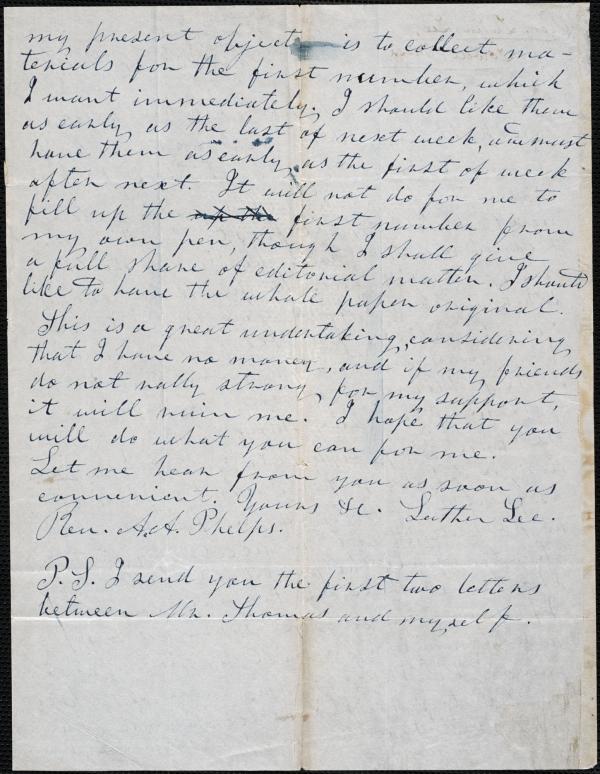 my present object is to collect ma-
terials for the first number, which
I want immediately. I should like them
as early as the last of next week, & must
have them as early as the first of week
after next. It will not do for me to
fill up the first number from
my own pen, though I shall give
a full share of editorial matter. I should
like to have the whole paper original.
This is a great undertaking, considering
that I have no money, and if my friends
do not rally strong, for my support,
it will ruin me. I hope that you
will do what you can for me.
Let me hear from you as soon as
convenient. Yours &c. Luther Lee.
Rev. A. A. Phelps.
P.S. I send you the first two letters
between Mr. Thomas and myself.